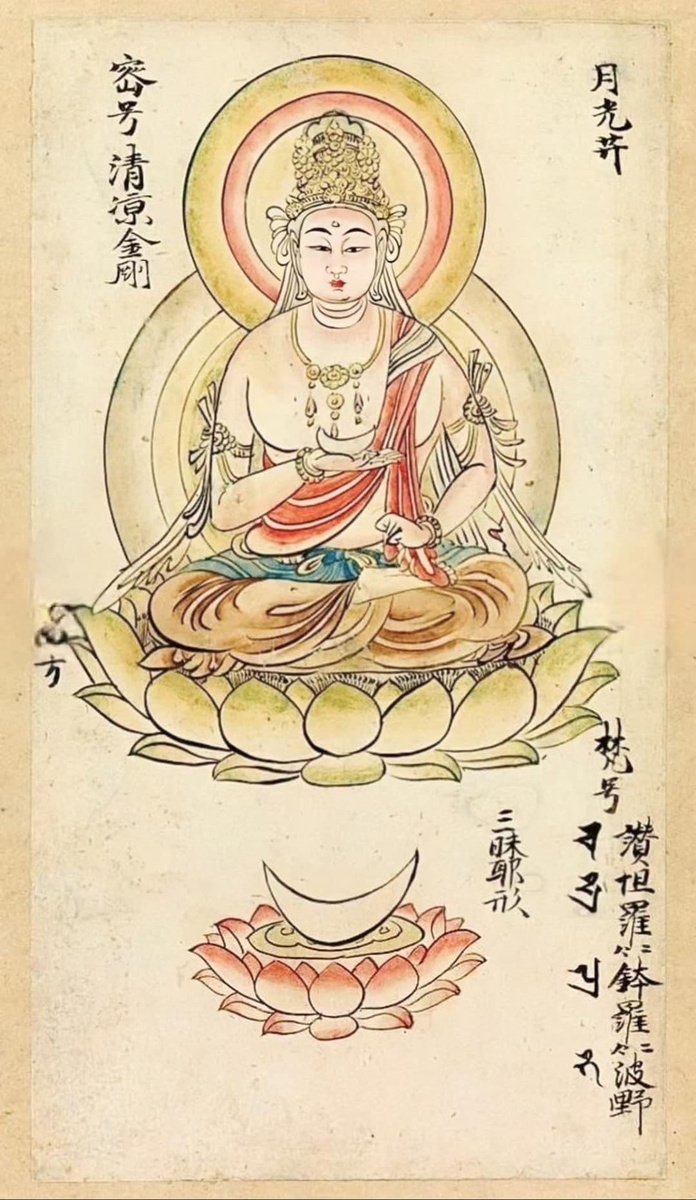 月光𦬇
密号 清涼金剛
梵号
讃怛羅二合鉢羅二合波野
三昧耶形
方